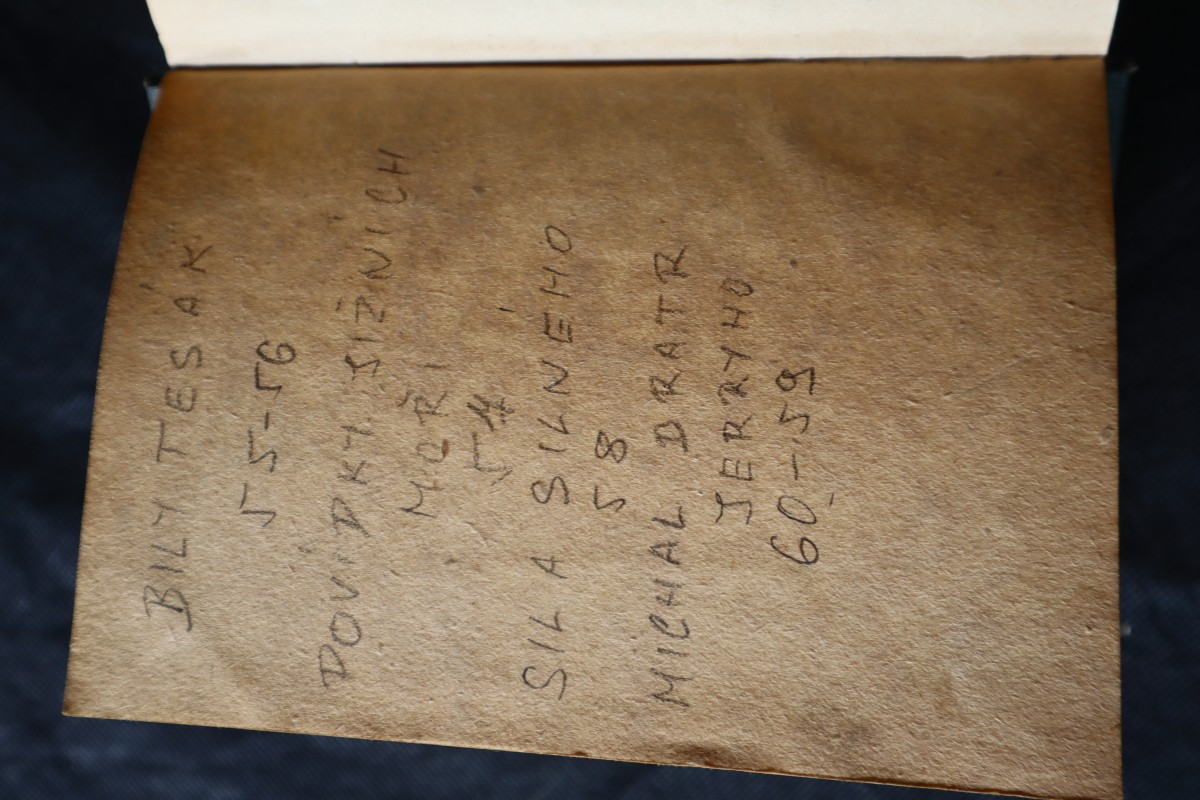 BILY TESÁK
55-56
POVÍDKY JIŽNÍCH
MOŘÍ
54
SILA SILNÉHO
58
MICHAL BRATR
JERRYHO
60-59